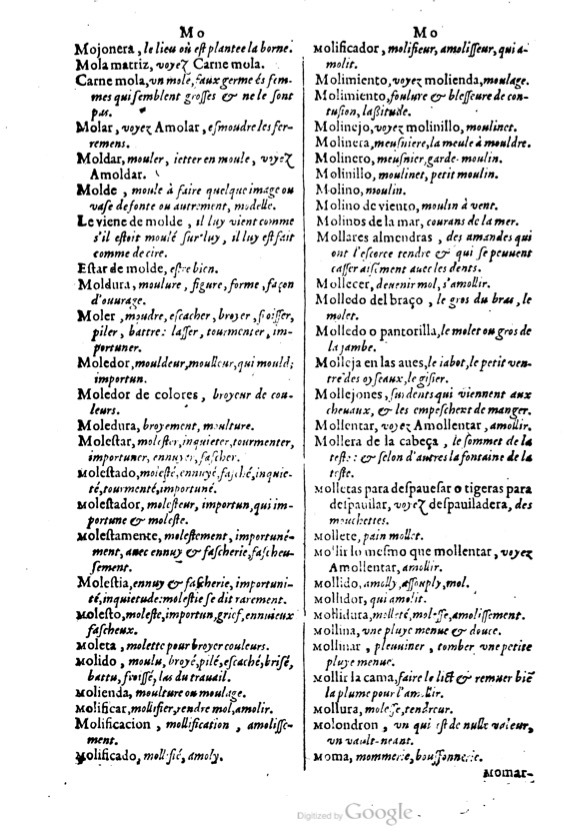 Mo
Mojonera, le lieu où est plantee la borne.
Mola matriz, voyez Carne mola.
Carne mola, vn mole, faux germe és fem-
mes qui semblent grosses & ne le sont
pas.
Molar, voyez Amolar, esmoudre les fer-
remens.
Moldar, mouler, ietter en moule, voyez
Amoldar.
Molde, moule à faire quelque image ou
vase de fonte ou autrement, modelle.
Le viene de molde, il luy vient comme
s'il estoit moulé sur luy, il luy est fait
comme de cire.
Estar de molde, estre bien.
Moldura, moulure, figure, forme, façon
d'ouurage.
Moler, moudre, escacher, broyer, froisser,
piler, battre: lasser, tourmenter, im-
portuner.
Moledor, mouldeur, moulleur, qui mould;
importun.
Moledor de colores, broyeur de cou-
leurs.
Moledura, broyement, moulture.
Molestar, molester, inquieter, tourmenter,
importuner, ennuyer, fascher.
Molestado, molesté, ennuyé, fasché, inquie-
té, tourmenté, importuné.
Molestador, molesteur, importun, qui im-
portune & moleste.
Molestamente, molestement, importuné-
ment, auec ennuy & fascherie, fascheu-
sement.
Molestia, ennuy & fascherie, importuni-
té, inquietude: molestie se dit rarement.
Molesto, moleste, importun, grief, ennuieux
fascheux.
Moleta, molette pour broyer couleurs.
Molido, moulu, broyé, pilé, escaché, brisé,
battu, froissé, las du trauail.
Molienda, moulture ou moulage.
Molificar, mollifier, rendre mol, amolir.
Molificacion, mollification, amolisse-
ment.
Molificado, mollifié, amoly.
Mo
Molificador, molifieur, amolisseur, qui a-
molit.
Molimiento, voyez molienda, moulage.
Molimiento, foulure & blesseure de con-
tusion, lassitude.
Molinejo, voyez molinillo, moulinet.
Molinera, meusniere, la meule à mouldre.
Molinero, meusnier, garde moulin.
Molinillo, moulinet, petit moulin.
Molino, moulin.
Molino de viento, moulin à vent.
Molinos de la mar, courans de la mer.
Mollares almendras, des amandes qui
ont l'escorce tendre & qui se peuuent
casser aisément auec les dents.
Mollecer, deuenir mol, s'amollir.
Molledo del braço, le gros du bras, le
molet.
Molledo o pantorilla, le molet ou gros de
la jambe.
Molleja en las aues, le iabot, le petit ven-
tre des oyseaux, le gisier.
Mollejones, surdents qui viennent aux
cheuaux, & les empeschent de manger.
Mollentar, voyez Amollentar, amollir.
Mollera de la cabeça, le sommet de la
teste: & selon d'autres la fontaine de la
teste.
Molletas para despauesar o tigeras para
despauilar, voyez despauiladera, des
mouchettes.
Mollete, pain mollet.
Mollir lo mesmo que mollentar, voyez
Amollentar, amollir.
Mollido, amolly, assouply, mol.
Mollidor, qui amolit.
Mollidura, molleté, molesse, amolissement.
Mollina, vne pluye menue & douce.
Mollinar, pleuuiner, tomber vne petite
pluye menue.
Mollir la cama, faire le lict & remuer biẽ
la plume pour l'amollir.
Mollura, molesse, tendreur.
Molondron, vn qui est de nulle valeur,
vn vault-neant.
Moma, mommerie, bouffonnerie.
Momar-
Digitized by Google